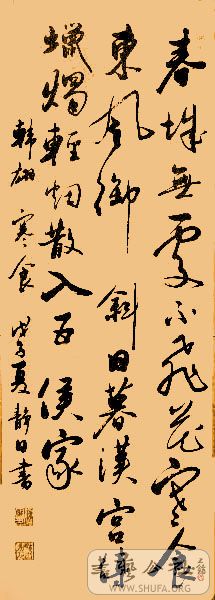 春城無處不飛花寒食
東風御斜日暮漢宮傳
蠟燭輕烟散入五侯家
韓翃 寒食 戊子夏靜日書
WWW.SHUFA.ORG